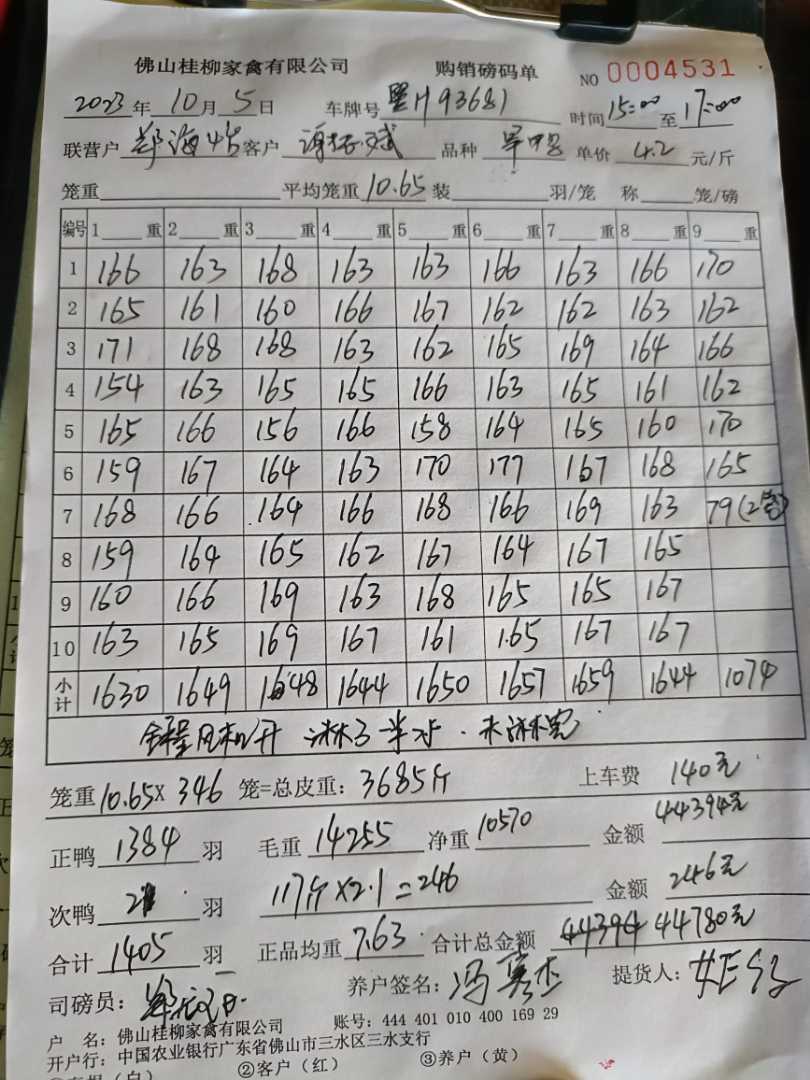 佛山桂柳家禽有限公司 购销磅码单 NO 0004531
2023年 10月 5日 车牌号 H93681 时间 15:00 至 17:00
联营户 郑海 客户 谢 斌 品种 单价 4.2 元/斤
笼重 平均笼重 10.65 装 羽/笼 称 笼/磅
编号 1 重 2 重 3 重 4 重 5 重 6 重 7 重 8 重 9 重
1 166 163 168 163 163 166 163 166 170
2 165 161 160 166 167 162 162 163 162
3 171 168 168 163 162 165 169 164 166
4 154 163 165 165 166 163 165 161 162
5 165 166 156 166 158 164 165 160 170
6 159 167 164 163 170 177 167 168 165
7 168 166 164 166 168 166 169 163 79(2笼)
8 159 164 165 162 167 164 167 165
9 160 166 169 163 168 165 165 167
10 163 165 169 167 161 165 167 167
小计 1630 1649 1648 1644 1650 1657 1659 1644 1074
全程风机开 淋了半水.未淋完
笼重 10.65 X 346 笼=总皮重: 3685斤 上车费 140元
正鸭 1384 羽 毛重 14255 净重 10570 金额 44394元
次鸭 21 羽 117斤X2.1=246 金额 246元
合计 1405 羽 正品均重 7.63 合计总金额 44394 44780元
司磅员: 养户签名: 冯 杰 提货人:
户 名: 佛山桂柳家禽有限公司 账号: 444 401 010 400 169 29
开户行: 中国农业银行广东省佛山市三水区三水支行
②客户(红) ③养户(黄)